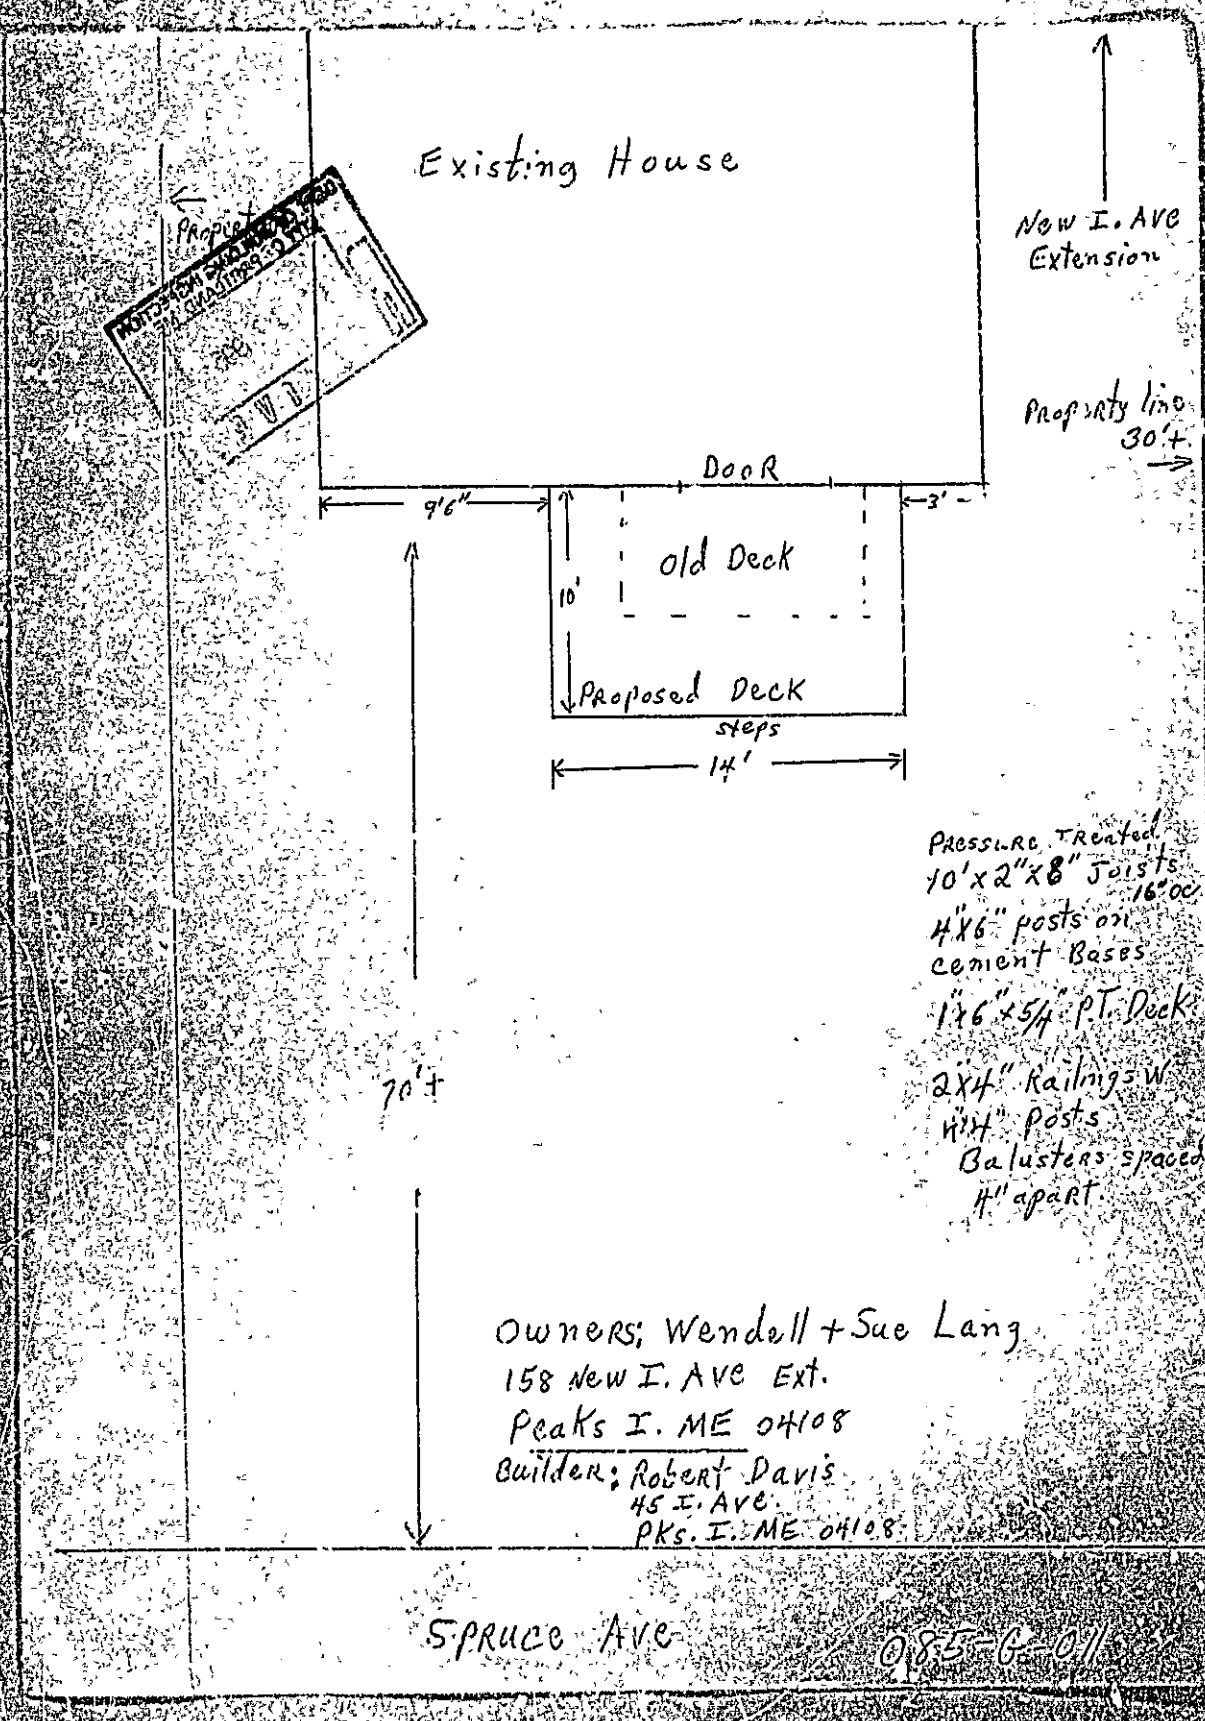 Existing House
New I. AVE
Extension
Property line
30'+
DOOR
9'6"
3'
old Deck
10'
Proposed Deck
steps
14'
Pressure Treated
10' x 2" x 8" Joists
16" OC
4"x6" posts on
cement Bases
1"x6"x5/4" P.T. Deck
2"x4" Railings w
4"x4" Posts
Balusters spaced
4" apart.
70'+
Owners; Wendell + Sue Lang
158 New I. AVE Ext.
Peaks I. ME 04108
Builder; Robert Davis
45 I. AVE.
PKs. I. ME 04108
SPRUCE AVE
085-G-011